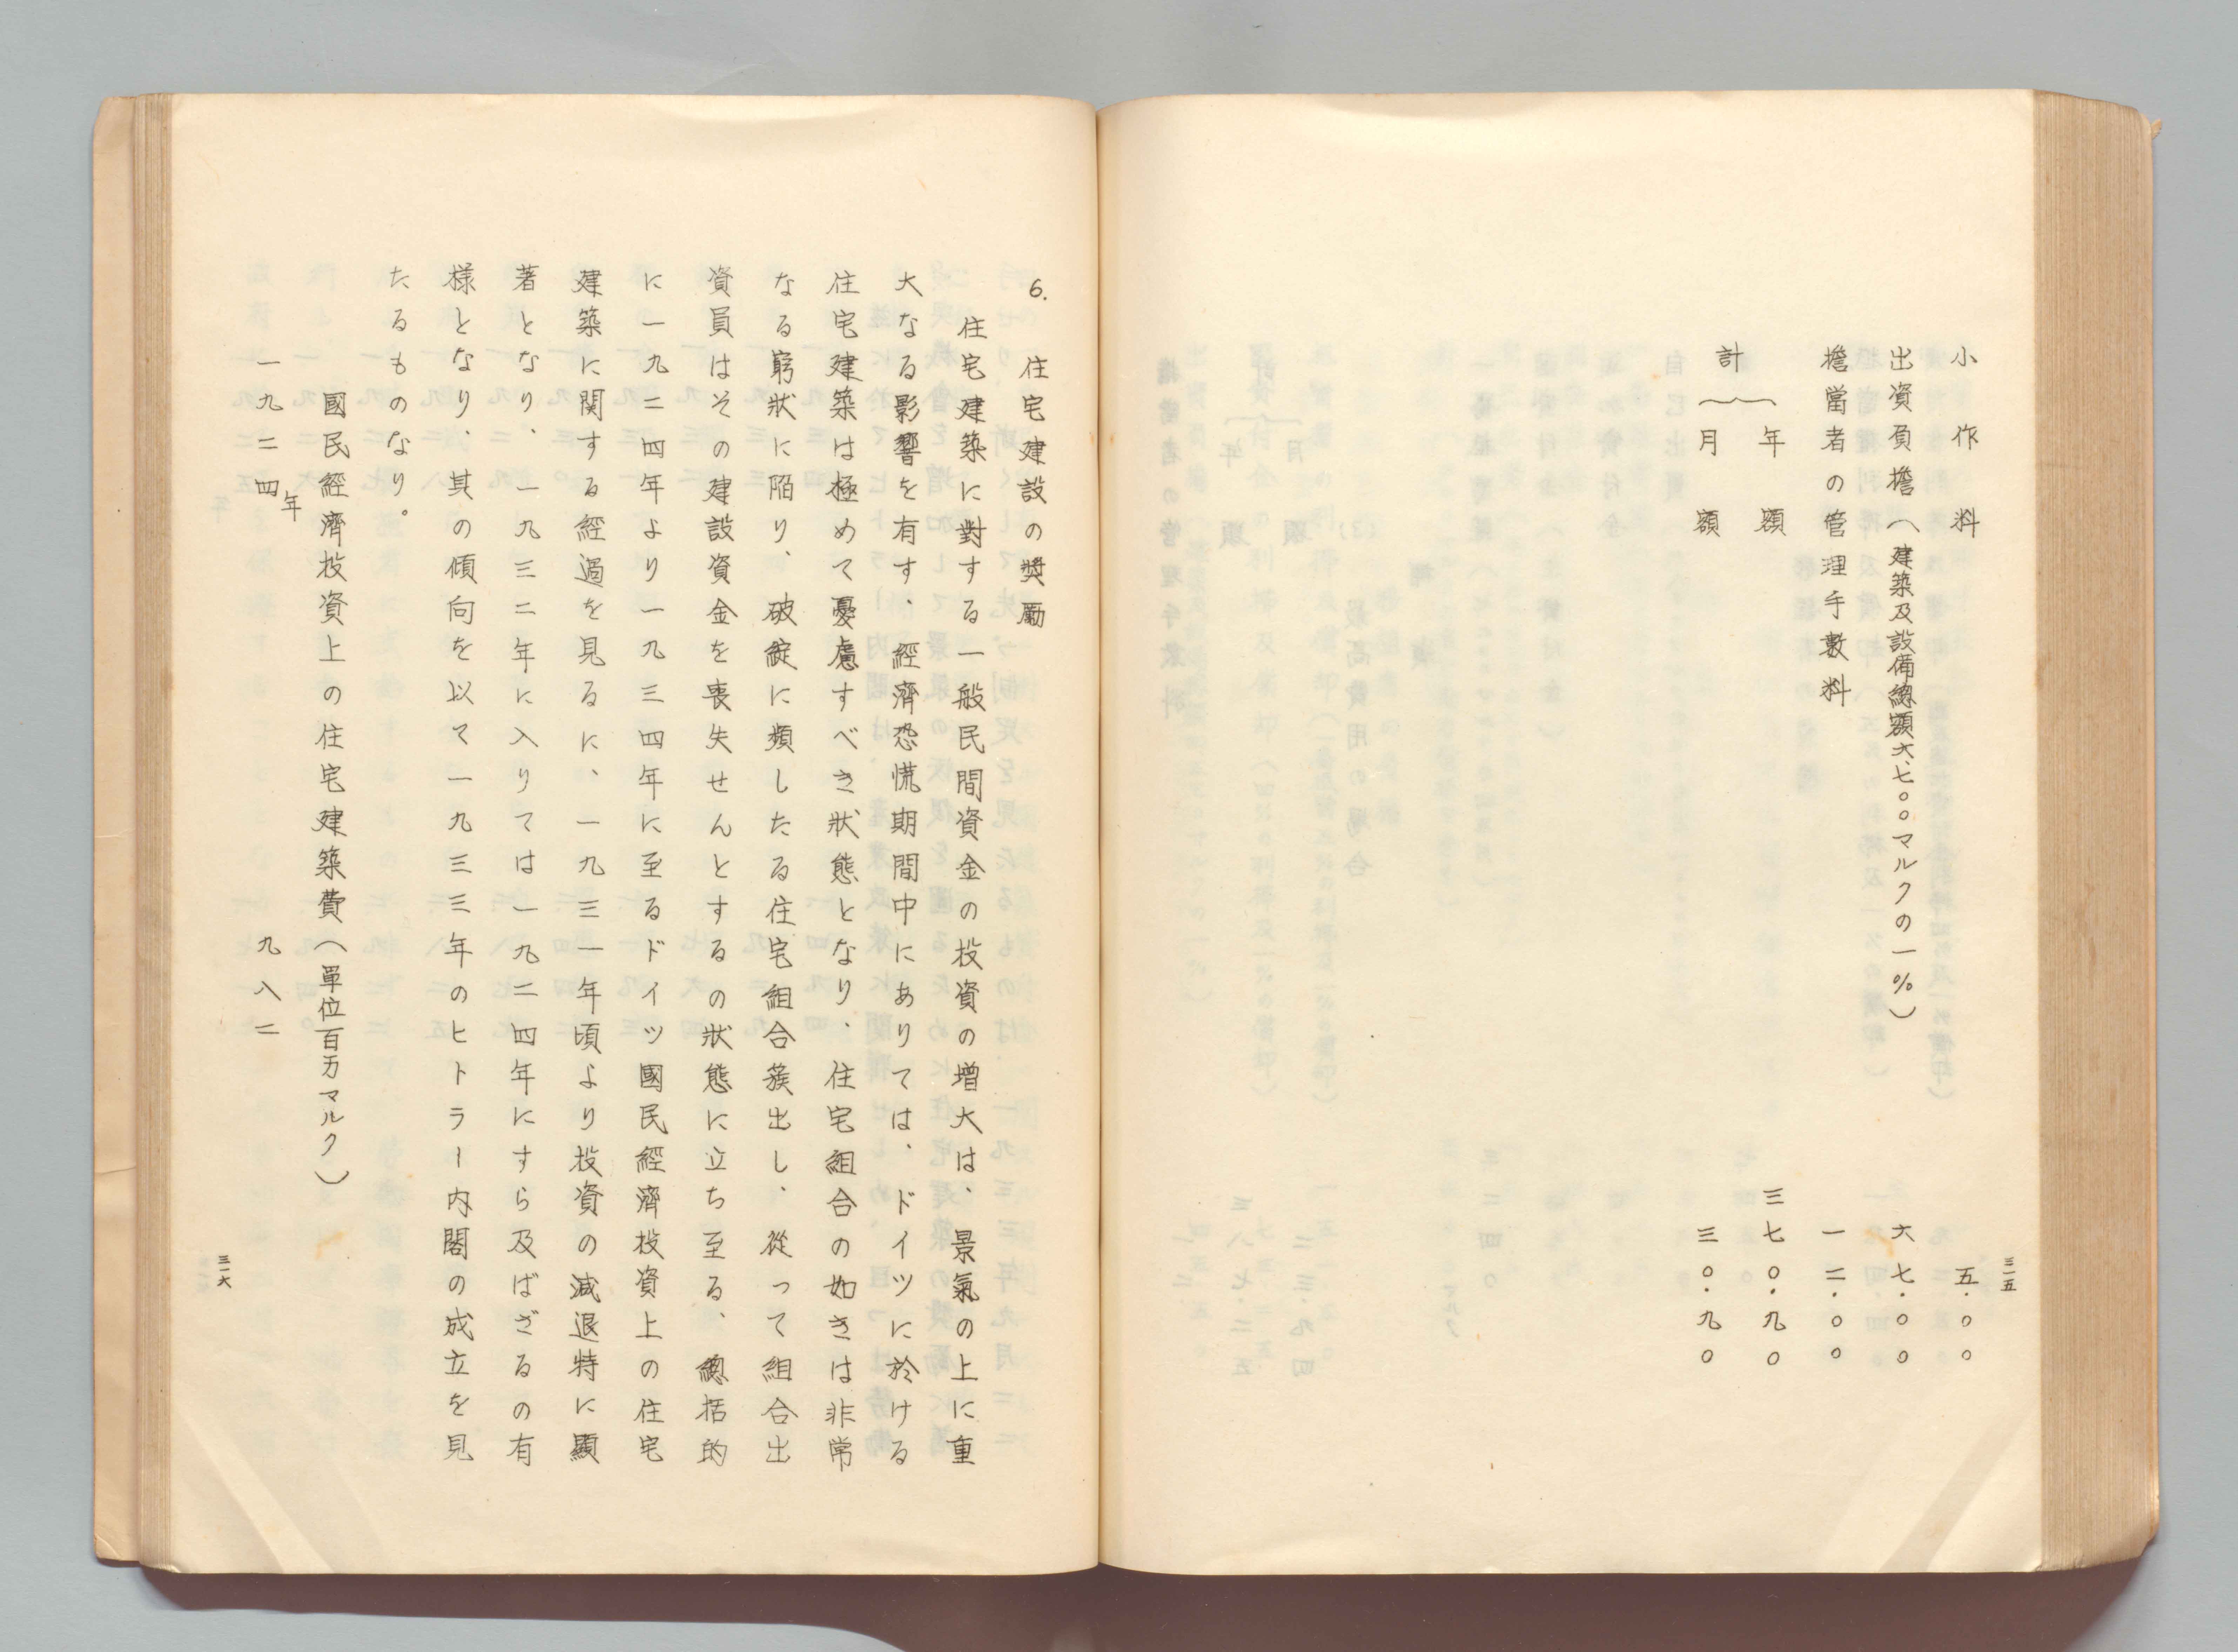 三一五
小作料 五.〇〇
出資負擔(建築及設備總額六、七〇〇マルクの一%) 六七.〇〇
擔當者の管理手數料 一二.〇〇
計
年額 三七〇.九〇
月額 三〇.九〇
6. 住宅建設の奬勵
住宅建築に對する一般民間資金の投資の増大は、景氣の上に重
大なる影響を有す、經濟恐慌期間中にありては、ドイツに於ける
住宅建築は極めて憂慮すべき狀態となり、住宅組合の如きは非常
なる窮狀に陷り、破綻に頻したる住宅組合簇出し、從って組合出
資員はその建設資金を喪失せんとするの狀態に立ち至る、總括的
に一九二四年より一九三四年に至るドイツ國民經濟投資上の住宅
建築に関する經過を見るに、一九三一年頃より投資の減退特に顯
著となり、一九三二年に入りては一九二四年にすら及ばざるの有
様となり、其の傾向を以て一九三三年のヒトラー内閣の成立を見
たるものなり。
國民經濟投資上の住宅建築費(單位百万マルク)
一九二四年 九八二
三一六